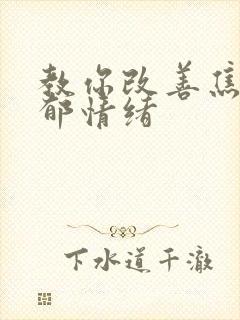 教你改善焦
郁情绪
下水道干澈